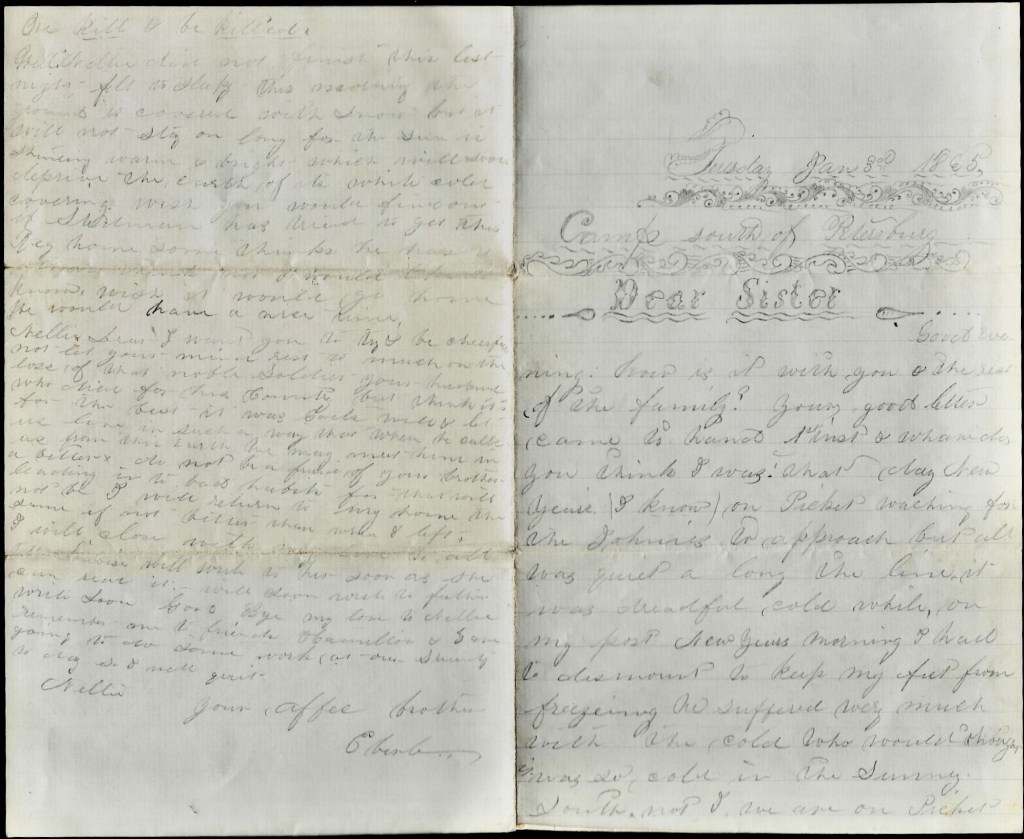 Tuesday Jan 3rd 1865,
Camp south of Petersburg
Dear Sister
Good Eve
ning. how is it with you & the rest
of the family? Your good letter
came to hand 1st inst & where do
you think I was? that day New
Years (I know) on Picket watching for
the Johnies to approach but all
was quiet a long the line, it
was dreadful cold while, on
my post New Years morning I had
to dismount to keep my feet from
freezeing We suffered very much
with the cold Who would thought
it was so, cold in the Sunny
South, not I, we are on Picket
One kill or be killed.
Well Nellie did not finish this last
night fell to sleep this morning the
ground is covered with snow but it
will not stay on long for the sun is
shineing warm & bright which will soon
deprive the earth of its white cold
covering wish you would find out
if has tried to get this
Reg home some thinks he has
I would like to
know, wish it would go home
We would have a nice time,
Nellie Dear I want you to try & be cheerful
not let your mind rest to much on the
loss, of that noble Soldier your husband
who died for his Country but think its
for the best it was Gods will & let
us live in such a way that when he calls
us from this Earth we may meet him in
a better & do not be afraid of your brother
leading in to bad habits for that will
not be I will return to my home the
same if not better than when I left.
I will close with my love to all
will write to her soon as she
can read it, will soon write to father
write soon Good Bye my love to Nellie
remember me to friends Hamilton & I are
going to do some work at our Shanty
to day so I will quit
Nellie
Your affec brother
Eben